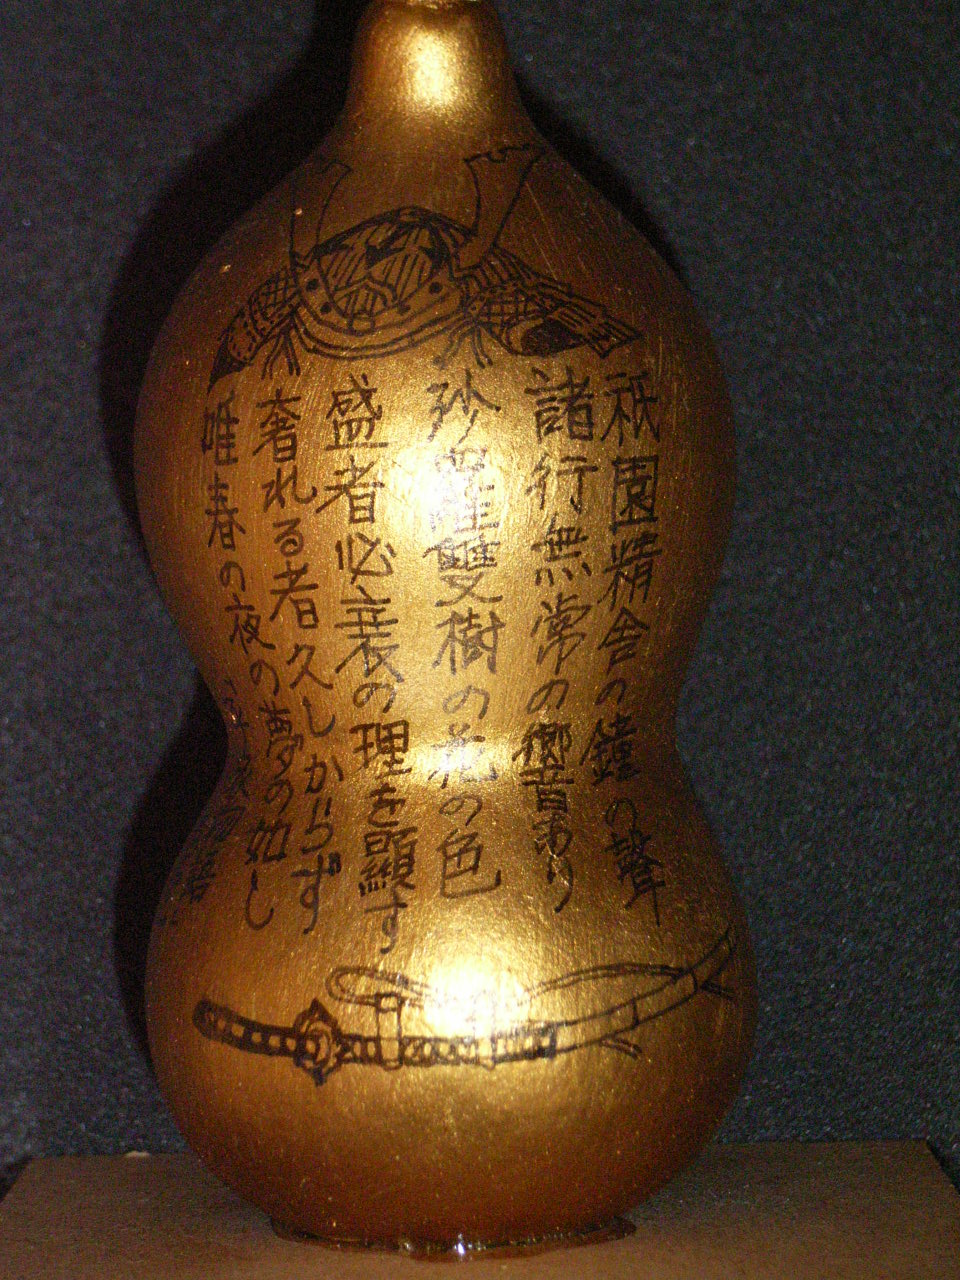 祇園精舎の鐘の聲
諸行無常の響あり
沙羅雙樹の花の色
盛者必衰の理を顯す
奢れる者久しからず
唯春の夜の夢の如し